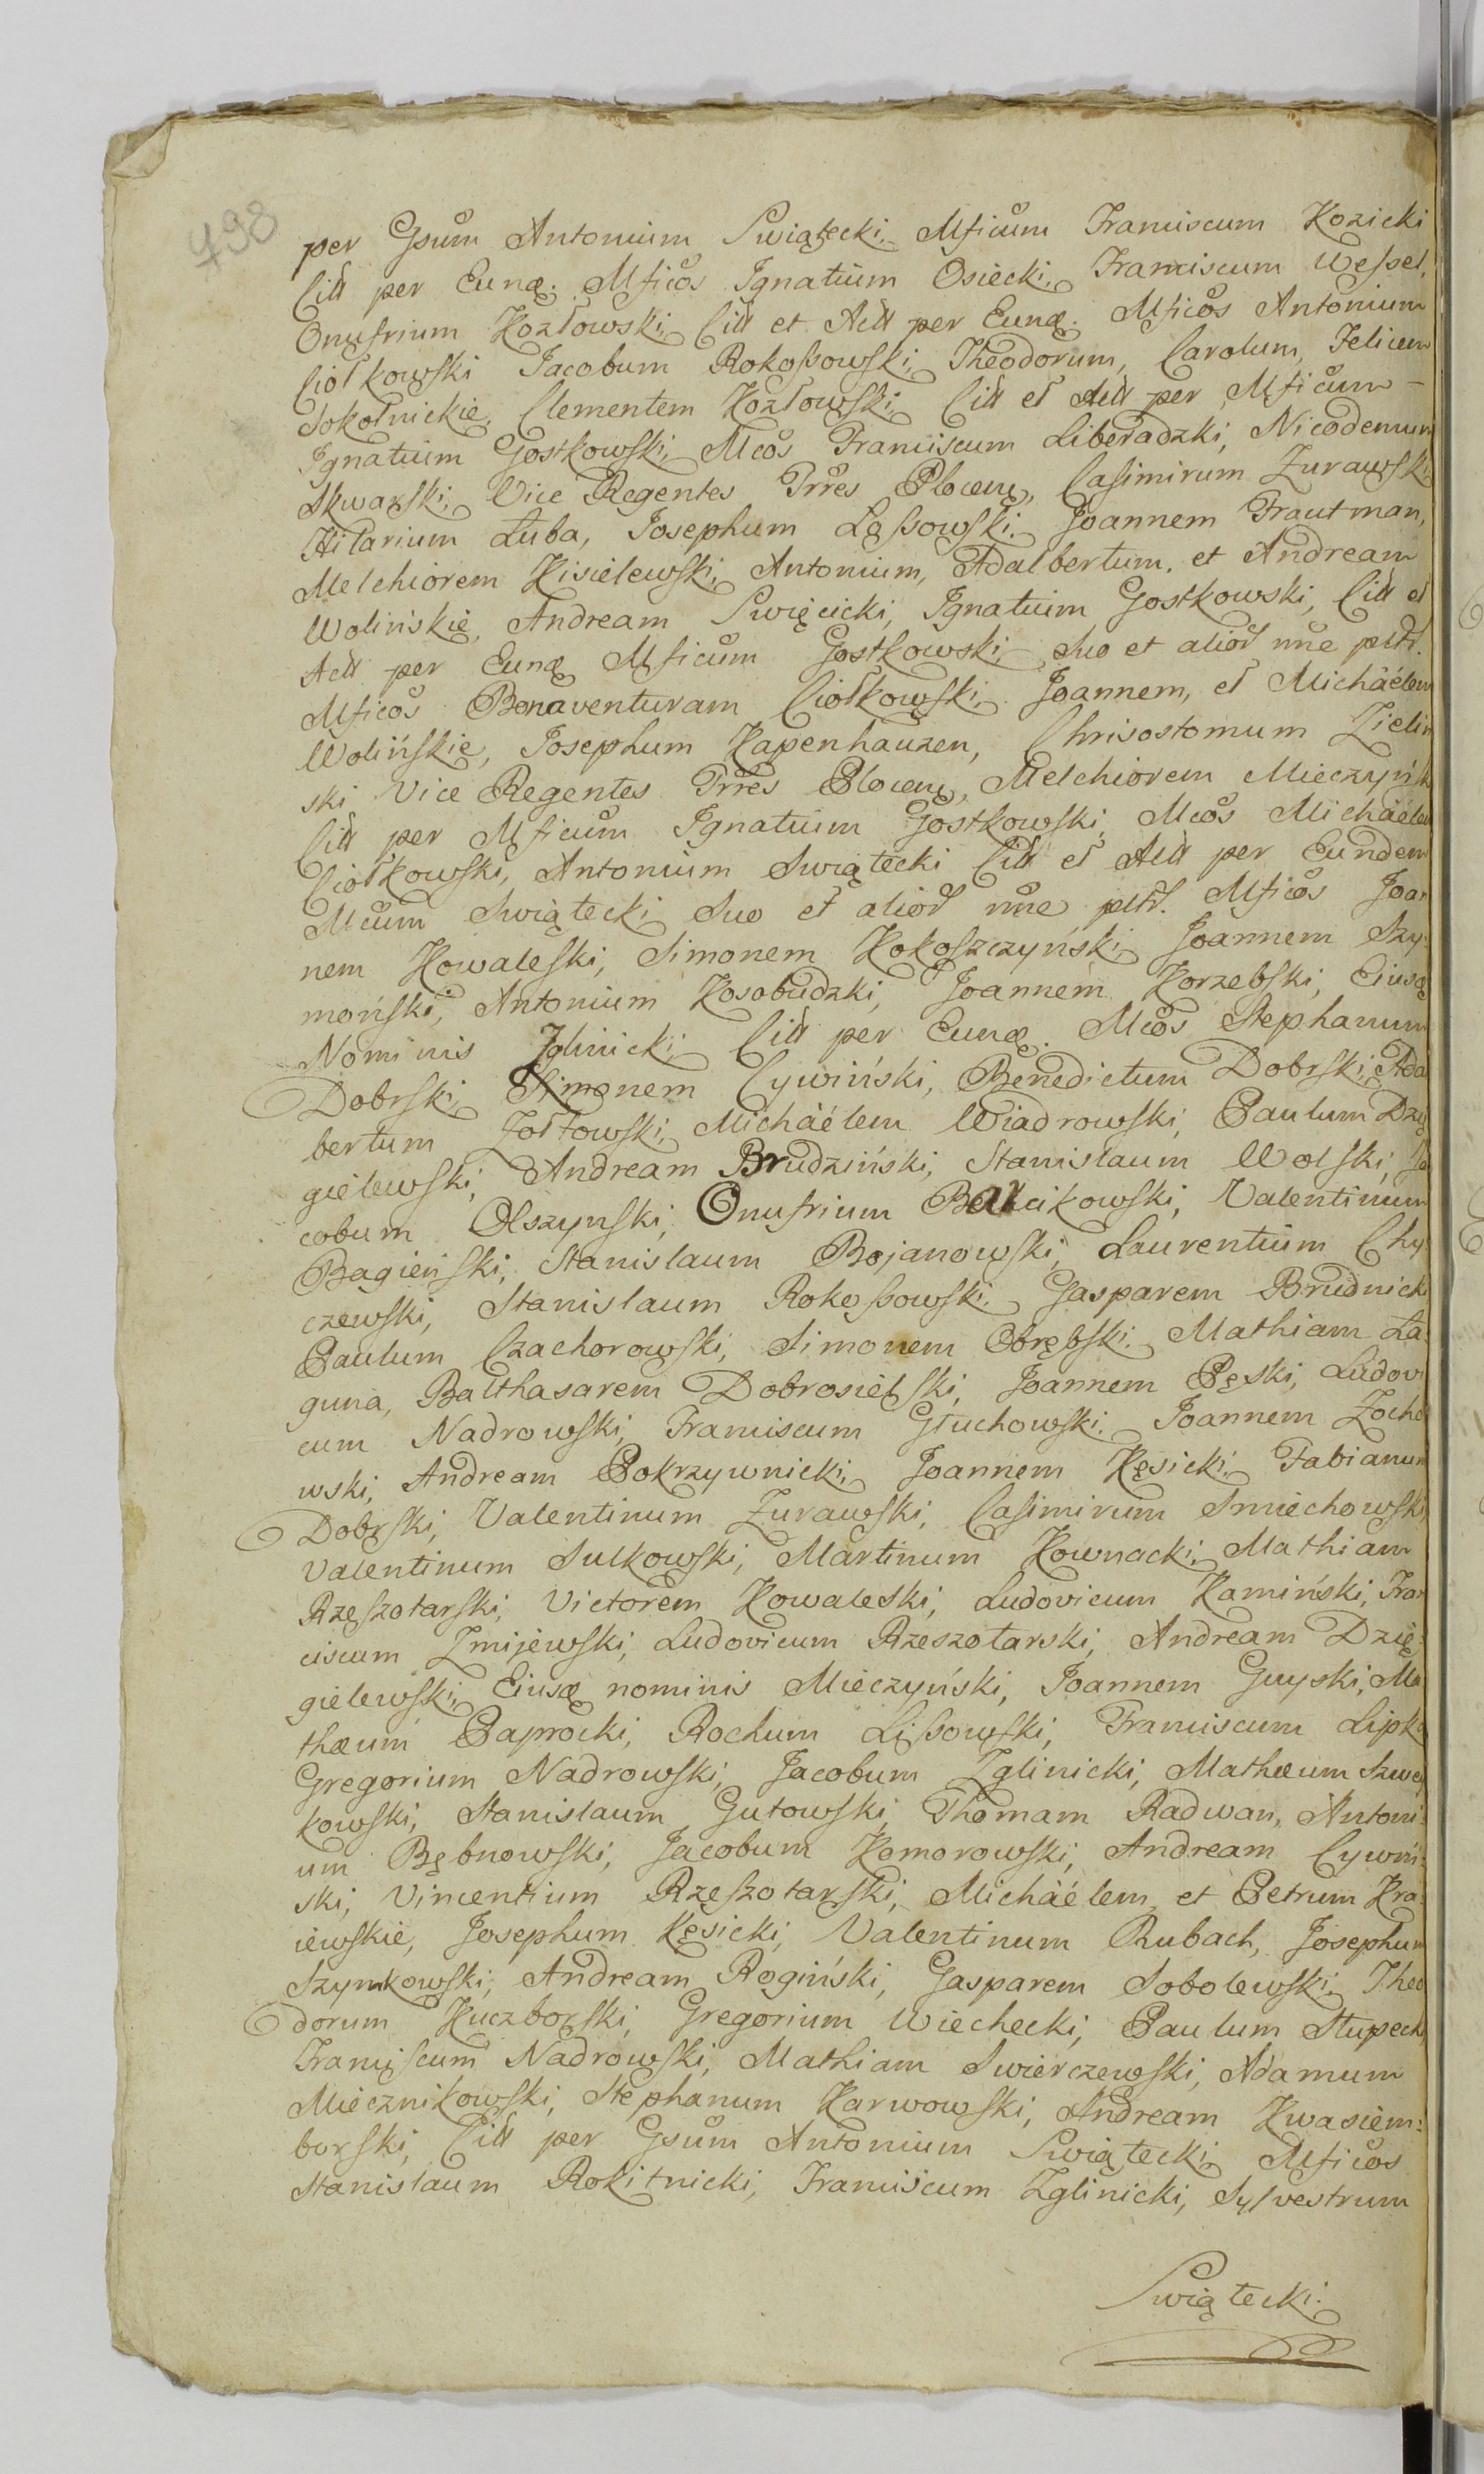 498
per Gsum Antonium Swiątecki, Mficum Franciscum Kozicki
Citt per Eunq. Mficos Ignatium Osiecki, Franciscum Weſsel,
Onufrium Kozłowski, Citt et Actt per Eunq. Mficos Antonium
Ciołkowski Jacobum Rokoſsowski, Theodorum, Carolum, Felicem
Sokolnickie, Clementem Kozłowski, Citt et Actt per Mficum
Ignatium Gostkowski, Mcos Franciscum Liberadzki, Nicodemum
Skwarski, Vice Regentes Trres Plocen, Casimirum Zurawski,
Hilarium Łuba, Josephum Łaſsowski, Joannem Trautman,
Melchiorem Kisielewski, Antonium, Adalbertum, et Andream
Wolińskie, Andream Swięcicki, Ignatium Gostkowski, Citt et
Actt per Eunq Mficum Gostkowski, Suo et alior nne
Mficos Bonaventuram Ciołkowski, Joannem, et Michäélem
Wolińskie, Josephum Kapenhauzen, Chrisostomum Zieliń
ski Vice Regentes Trres Plocen, Melchiorem Mieczyńsk
Citt per Mficum Ignatium Gostkowski, Mcos Michäélem
Ciołkowski, Antonium Swiątecki Citt et Actt per Eundem
Mcum Swiątecki Suo et alior nne Mficos Joan
nem Kowaleski, Simonem Kokoszczyński, Joannem Szy
moński, Antonium Kosobudzki, Joannem Korzebski, Eiusq
Nominis Zglinicki, Citt per Eunq. Mcos Stephanum
Dobrski, Simonem Cywiński, Benedictum Dobrski, Adal
bertum Zołtowski, Michäélem Wiadrowski, Paulum Dzię
gielewski, Andream Brudziński, Stanislaum Wolski, Ja
cobum Olszynski, Onufrium Barcikowski, Valentinum
Bagieński, Stanislaum Bojanowski, Laurentium Chy
czewski, Stanislaum Rokoſsowski, Gasparem Brudnicki
Paulum Czachorowski, Simonem Obrębski, Mathiam La
guna, Balthasarem Dobrosielski, Joannem Pęski, Ludovi
cum Nadrowski, Franciscum Głuchowski, Joannem Zocho
wski, Andream Pokrzywnicki, Joannem Kęsicki, Fabianum
Dobrski, Valentinum Zurawski, Casimirum Smiechowski,
Valentinum Sulkowski, Martinum Kownacki, Mathiam
Rzeszotarski, Victorem Kowaleski, Ludovicum Kamiński, Fran
ciscum Zmijewski, Ludovicum Rzeszotarski, Andream Dzię
gielewski, Eiusq nominis Mieczyński, Joannem Guyski, Ma
thæum Paprocki, Rochum Liſsowski, Franciscum Lipka
Gregorium Nadrowski, Jacobum Zglinicki, Mathæum Szwey
kowski, Stanislaum Gutowski, Thomam Radwan, Antoni:
um Bębnowski, Jacobum Komorowski, Andream Cywiń:
ski, Vincentium Rzeszotarski, Michäélem et Petrum Kra
iewskie, Josephum Kęsicki, Valentinum Rubach, Josephum
Szymkowski, Andream Rogiński, Gasparem Sobolewski, Theo
dorum Kuczborski, Gregorium Wiechecki, Paulum Słupecki,
Franciscum Nadrowski, Mathiam Swierczewski, Adamum
Miecznikowski, Stephanum Karwowski, Andream Kwasiem:
borski, Citt per Gsum Antonium Swiątecki, Mficos
Stanislaum Rokitnicki, Franciscum Zglinicki, Sylvestrum
Swiątecki.